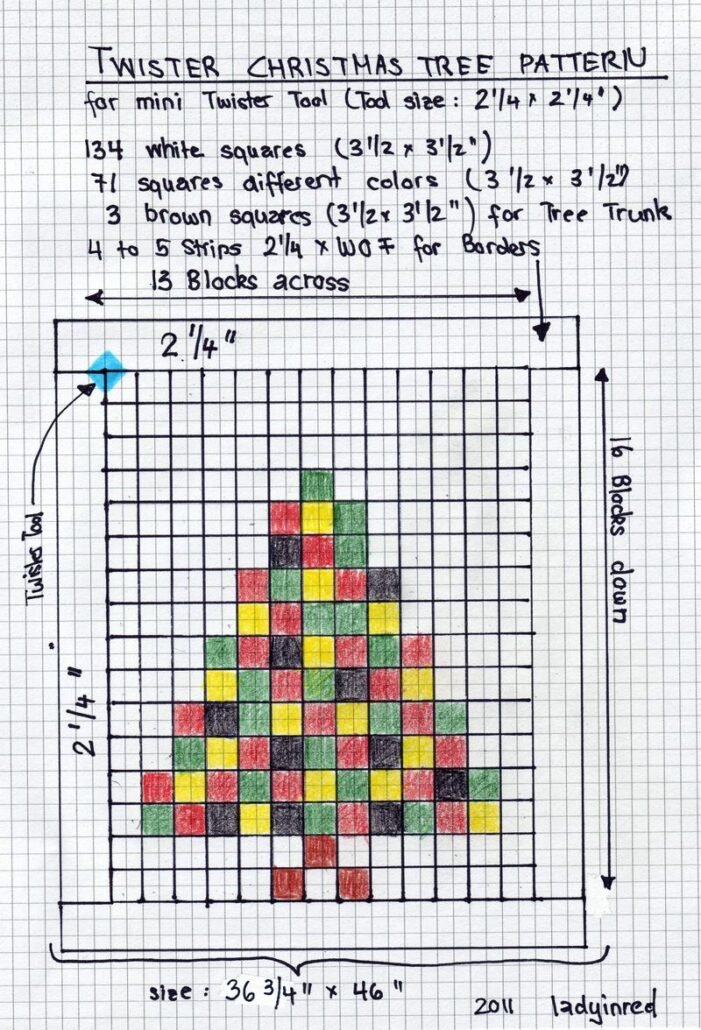 TWISTER CHRISTMAS TREE PATTERN
for mini Twister Tool (Tool size: 2 1/4 x 2 1/4")
134 white squares (3 1/2 x 3 1/2")
71 squares different colors (3 1/2 x 3 1/2")
3 brown squares (3 1/2 x 3 1/2") for Tree Trunk
4 to 5 Strips 2 1/4 x WOF for Borders
13 Blocks across
2 1/4"
16 Blocks down
Twister Tool
2 1/4"
size: 36 3/4" x 46"
2011 ladyinred